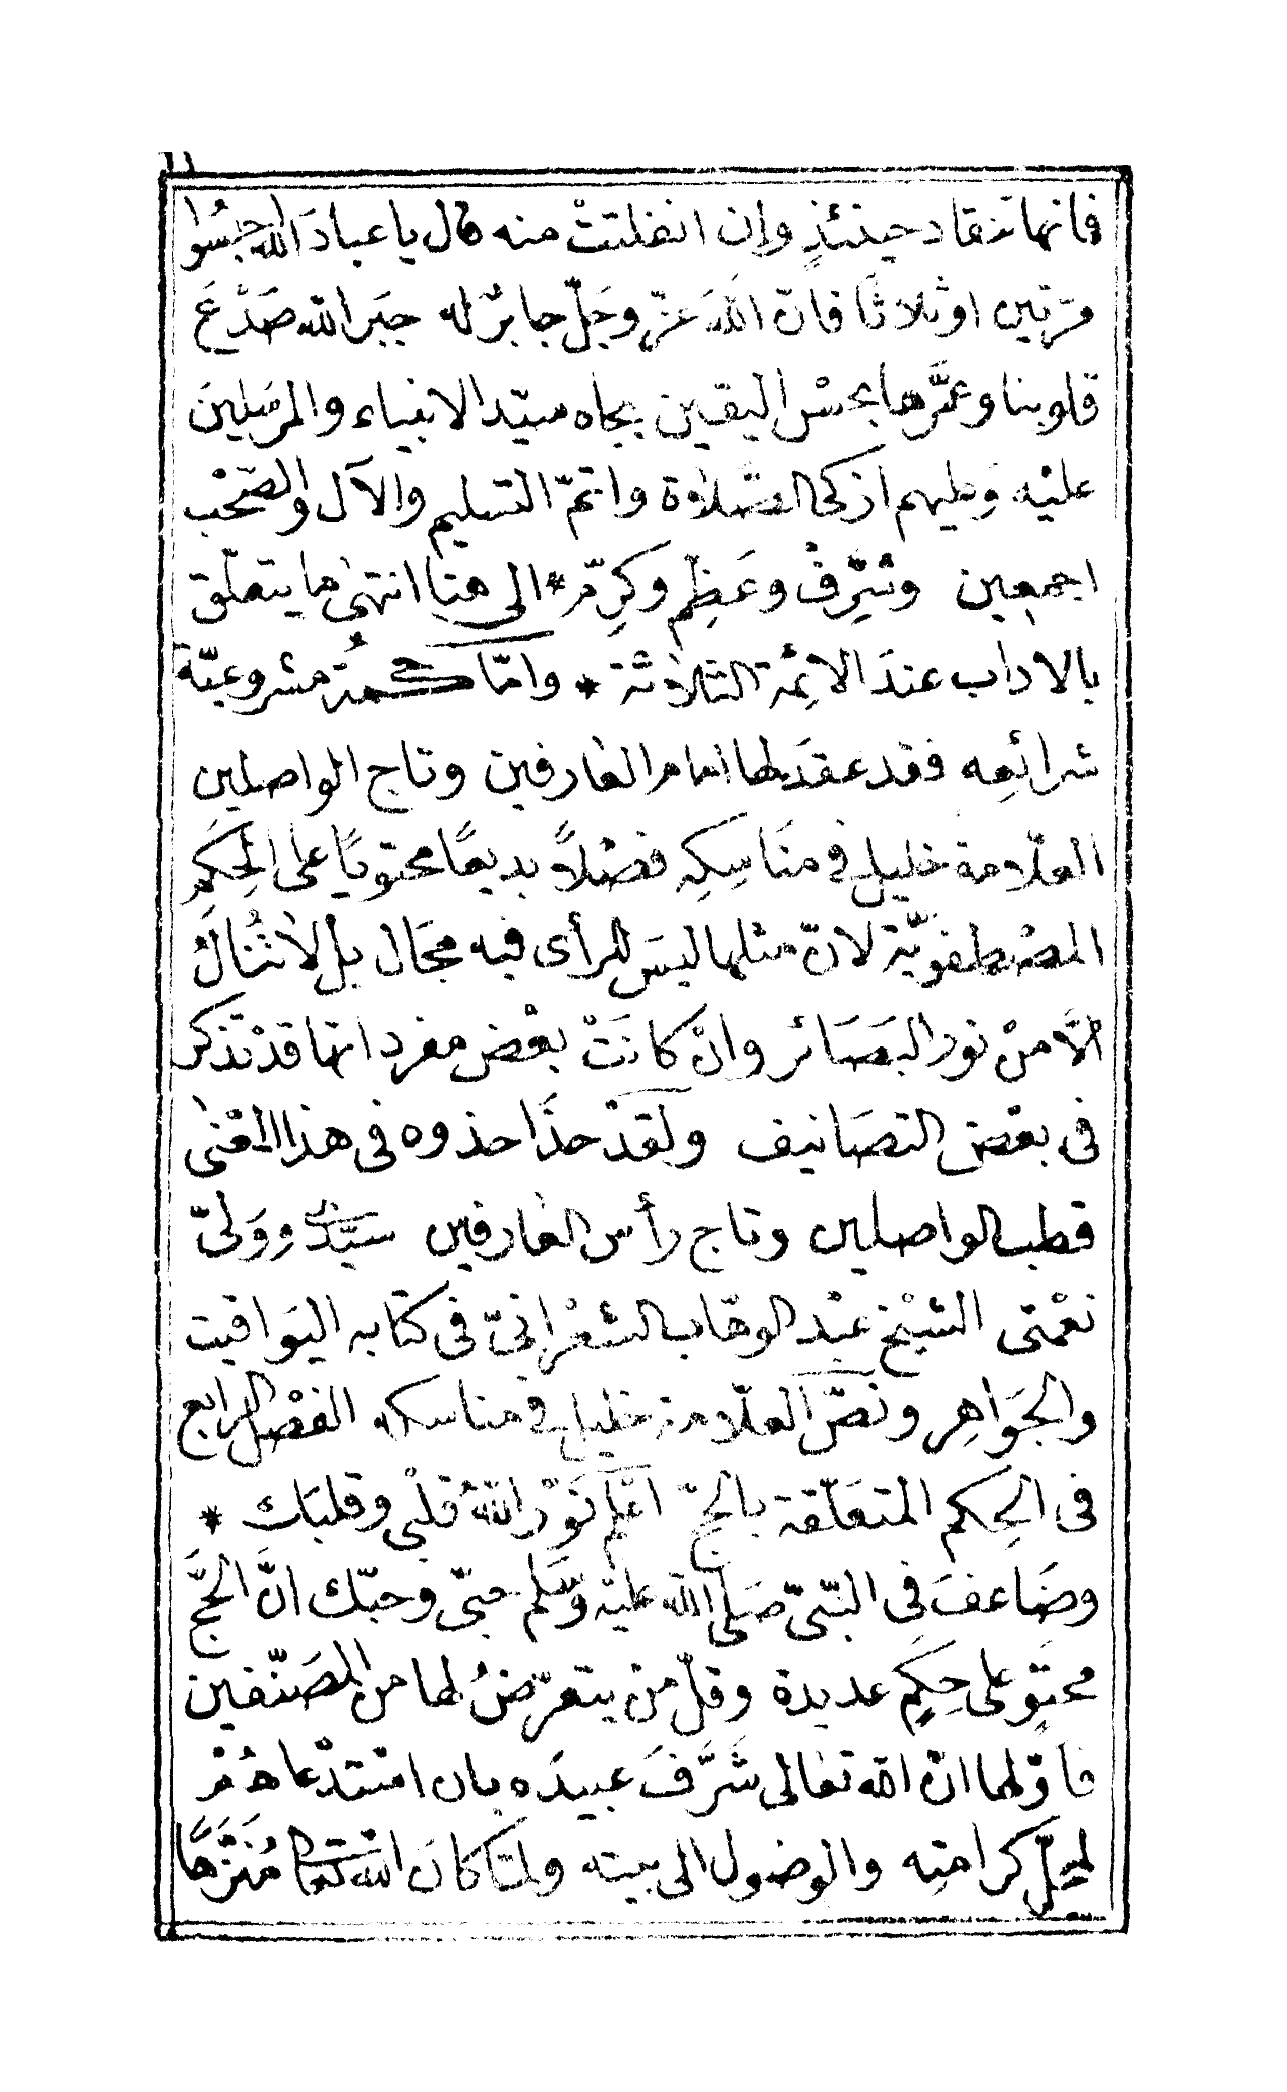 فانها تنقاد حينئذٍ وإن انفلتتْ منه قال يا عبادَ الله احبسُوا
مرّتين او ثلاثًا فانّ اللهَ عزّ وجَلّ جابرٌ له جبَر الله صَدْعَ
قلوبنا وعمَّرها بحسْن اليقين بجاه سيّد الانبياء والمرسَلينَ
عليْه وعليهم ازكى الصَّلاوة واتمّ التسليم والآل والصّحْب
اجمعين وشرِّفْ وعَظِّم وكرِّمْ * الى هنا انتهىٰ ما يتعلّق
بالاداب عندَ الائِمّة الثلاثة * وامّا حكمةُ مشروعيّة
شرائعِه فقد عقدَ لها امام العارفين وتاج الواصلين
العلّامة خليل في مناسِكِه فصْلاً بديعًا محتويًا على الحِكَمِ
المصْطفويّة لانّ مثلها ليسَ للرأى فيه مجَال بل لا تُنالُ
الّا منْ نور البَصَائر وانْ كانَتْ بعْض مفرداتها قدْ تذكر
فى بعْض التصَانيف ولقدْ حذَا حذوه فى هذا المعْنىٰ
قطب الواصلين وتاج رأس العارفين سَيّدى ووَلىّ
نعْمتى الشيْخ عبْد الوهّاب الشعْرانىّ فى كتابه اليَواقيت
والجَواهِر ونصّ العلّامة خليل في مناسكه الفصْل الرابع
فى الحِكم المتعَلّقة بالحجّ اعْلم نَوّرَ اللهُ قلْبى وقلبَك *
وضَاعفَ فى النبّىّ صَلى الله عليْه وسَلم حبّى وحبّك انَّ الحجَّ
محتوٍ على حِكَمٍ عديدة وقلّ من يتعرّضُ لها من المصَنّفين
فاوّلها انْ الله تعالى شَرَّفَ عبيدَه بان اسْتدْعاهُمْ
لمحلّ كرامتِه والوصُول الى بيته ولمّا كانَ اللهُ تعالى مُنَزَّهًا